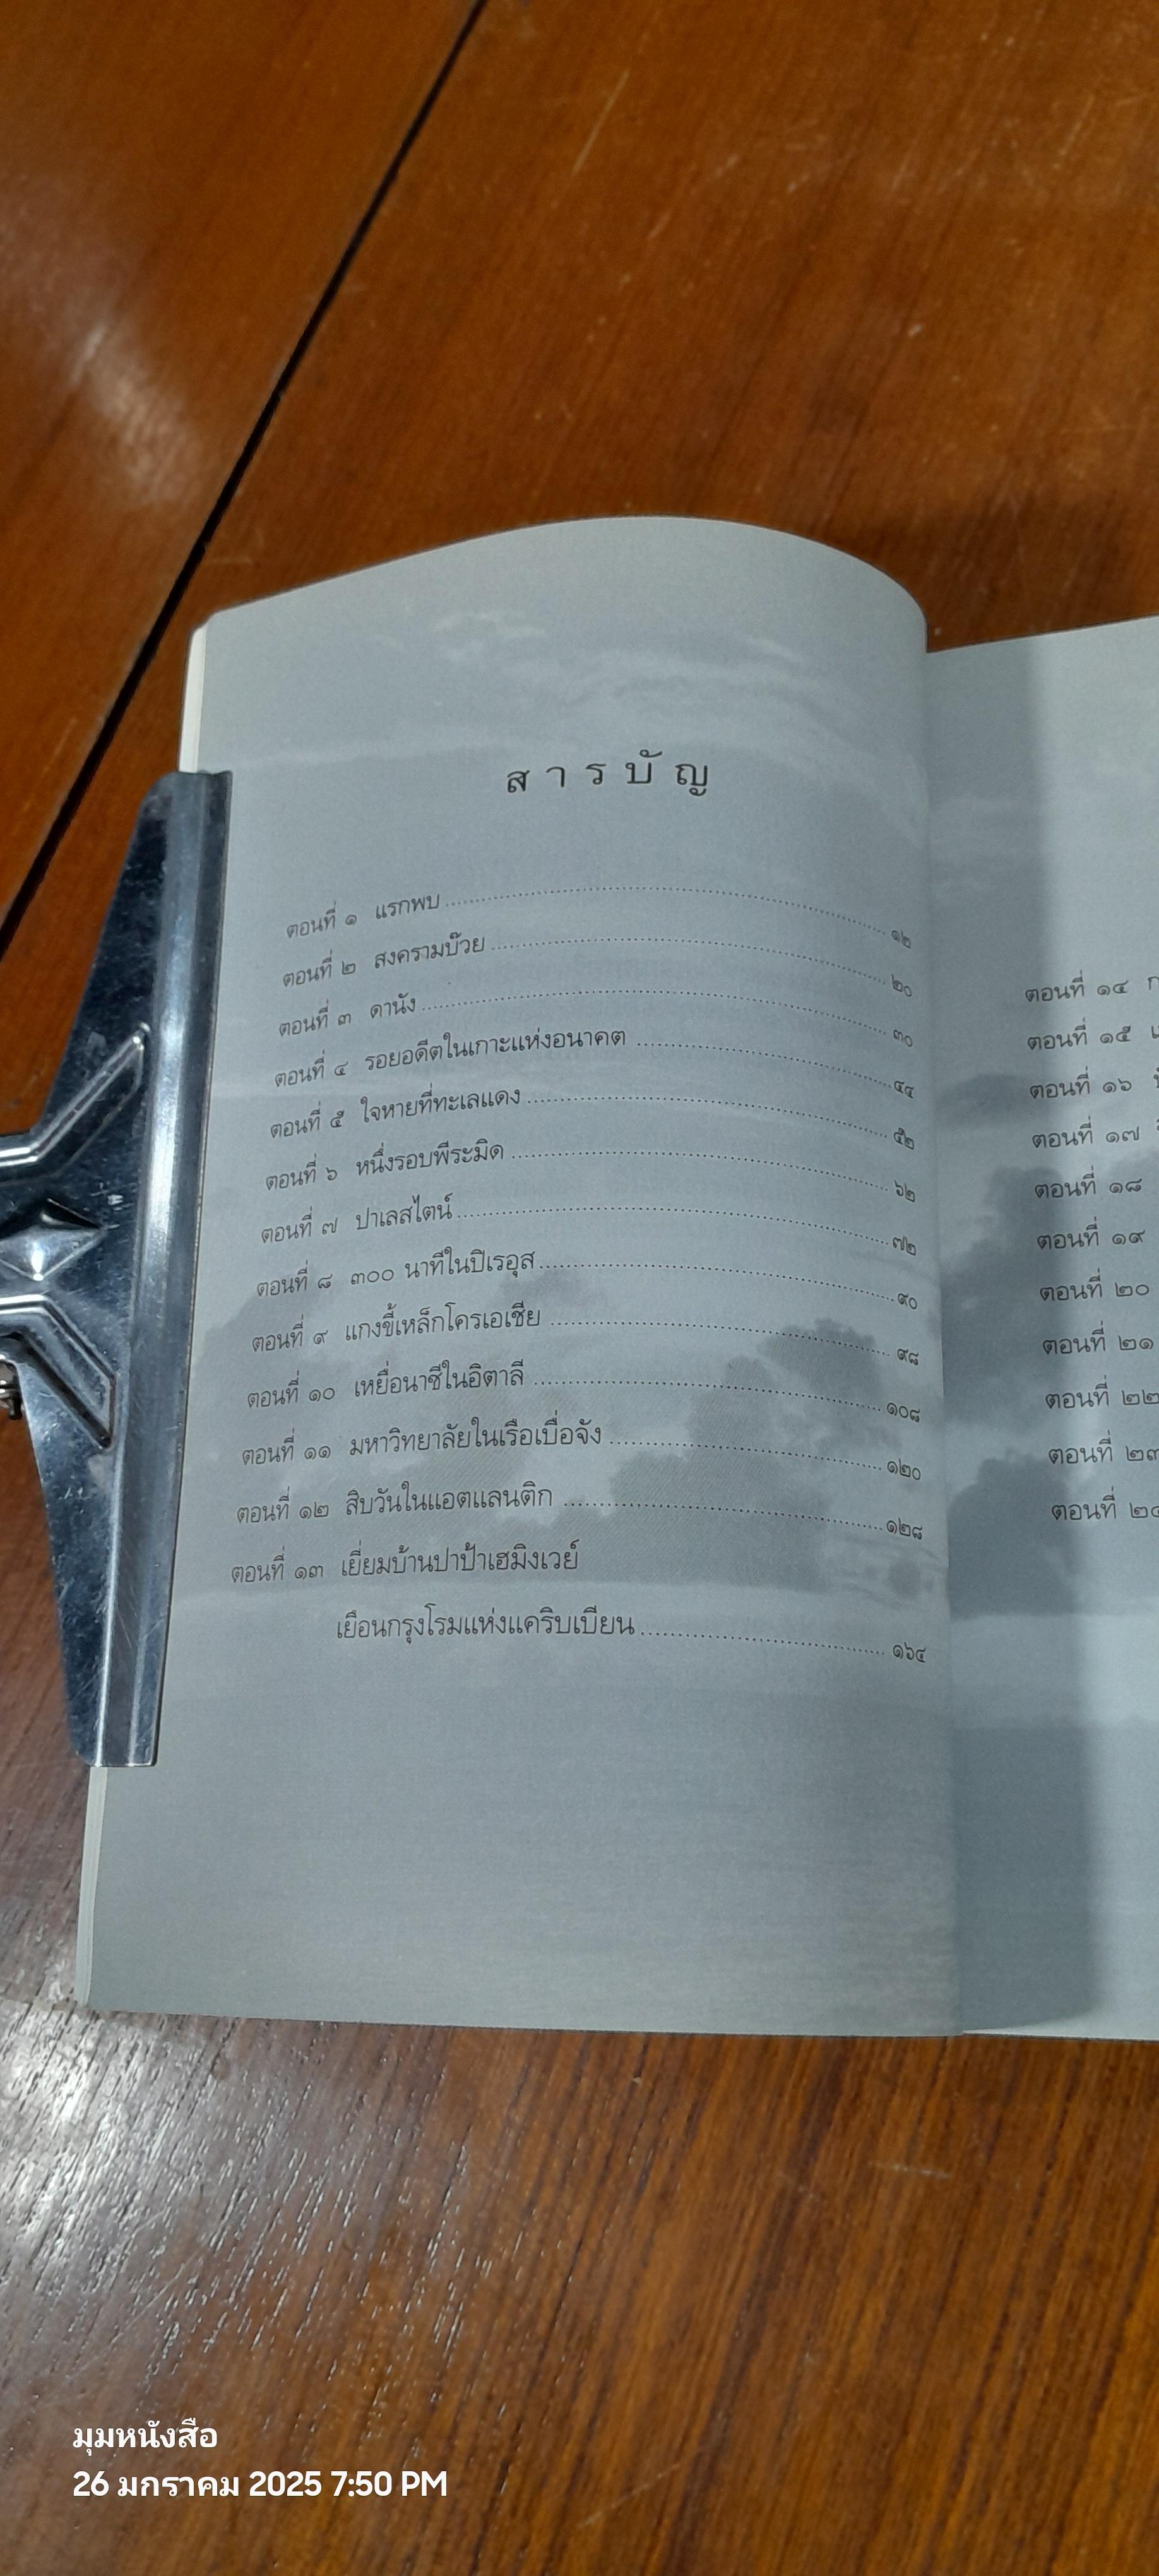 สารบัญ
ตอนที่ ๑ แรกพบ ๑๒
ตอนที่ ๒ สงครามบ๊วย ๒๐
ตอนที่ ๓ ดานัง ๓๐
ตอนที่ ๔ รอยอดีตในเกาะแห่งอนาคต ๔๔
ตอนที่ ๕ ใจหายที่ทะเลแดง ๕๒
ตอนที่ ๖ หนึ่งรอบพีระมิด ๖๒
ตอนที่ ๗ ปาเลสไตน์ ๗๒
ตอนที่ ๘ ๓๐๐ นาทีในปิเรอุส ๙๐
ตอนที่ ๙ แกงขี้เหล็กโครเอเชีย ๙๘
ตอนที่ ๑๐ เหยื่อนาซีในอิตาลี ๑๐๘
ตอนที่ ๑๑ มหาวิทยาลัยในเรือเบื่อจัง ๑๒๐
ตอนที่ ๑๒ สิบวันในแอตแลนติก ๑๒๘
ตอนที่ ๑๓ เยี่ยมบ้านปาป้าเฮมิงเวย์
เยือนกรุงโรมแห่งแคริบเบียน ๑๖๔
ตอนที่ ๑๔
ตอนที่ ๑๕
ตอนที่ ๑๖
ตอนที่ ๑๗
ตอนที่ ๑๘
ตอนที่ ๑๙
ตอนที่ ๒๐
ตอนที่ ๒๑
ตอนที่ ๒๒
ตอนที่ ๒๓
ตอนที่
มุมหนังสือ
26 มกราคม 2025 7:50 PM